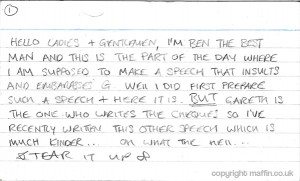 1
HELLO LADIES + GENTLEMEN, I'M BEN THE BEST
MAN AND THIS IS THE PART OF THE DAY WHERE
I AM SUPPOSED TO MAKE A SPEECH THAT INSULTS
AND EMBARASES G. WELL I DID FIRST PREPARE
SUCH A SPEECH + HERE IT IS. BUT GARETH IS
THE ONE WHO WRITES THE CHEQUES SO I'VE
RECENTLY WRITTEN THIS OTHER SPEECH WHICH IS
MUCH KINDER... OH WHAT THE HELL...
TEAR IT UP
copyright maffin.co.uk